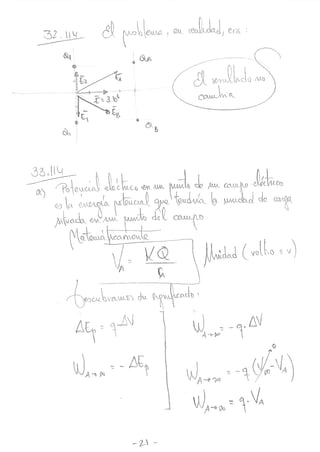 32.114 El problema, en realidad, era:
Q₁ Q_A
E₂ E_A
E = 3.10⁶
E₁ E_B
Q₁ Q_B
El resultado no
cambia
33.114
a) Potencial eléctrico en un punto de un campo eléctrico
es la energía potencial que tendría la unidad de carga
situada en un punto del campo
Matemáticamente
V_A = KQ / r_A Unidad (voltio = v)
Descubramos su significado:
ΔEp = q·ΔV W_A→∞ = -q·ΔV
W_A→∞ = -ΔEp W_A→∞ = -q (V∞ - V_A)
0
W_A→∞ = q·V_A
-21-